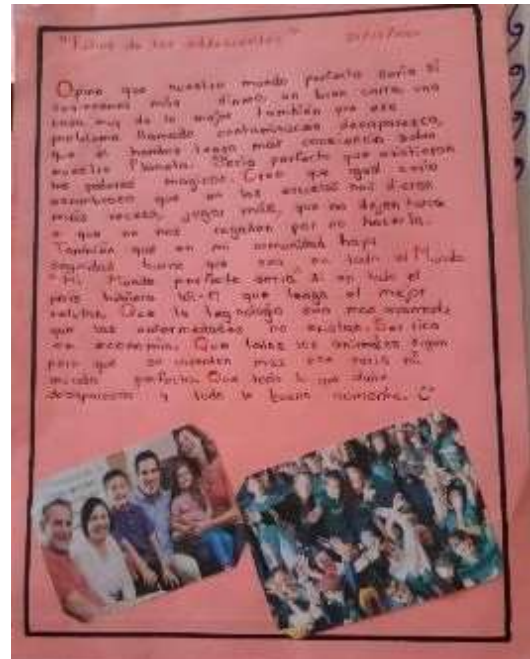 de los adolescentes"
Opino que nuestro mundo perfecto seria si
tuvieramos más dinero, un buen carro, una
casa muy de lo mejor también que ese
problema llamado contaminación desaparesca,
que el hombre tenga más conciencia sobre
nuestro Planeta. Seria perfecto que existieran
los poderes magicos. Creo que igual seria
asombroso que en las escuelas nos dieran
más receso, jugar más, que no dejen tarea
o que no nos regañen por no hacerla.
También que en mi comunidad haya
seguridad bueno que sea en todo el Mundo
"Mi Mundo perfecto seria" Si en todo el
pais hubiera Wi-Fi que tenga el mejor
celular. Que la tegnologia sea mas avanzada
que las enfermedades no existan. Ser rica
en economia. Que todos los animales sigan
pero que se inventen mas ese seria mi
mundo perfecto. Que todo lo que daña
desaparesca y todo lo bueno aumente.